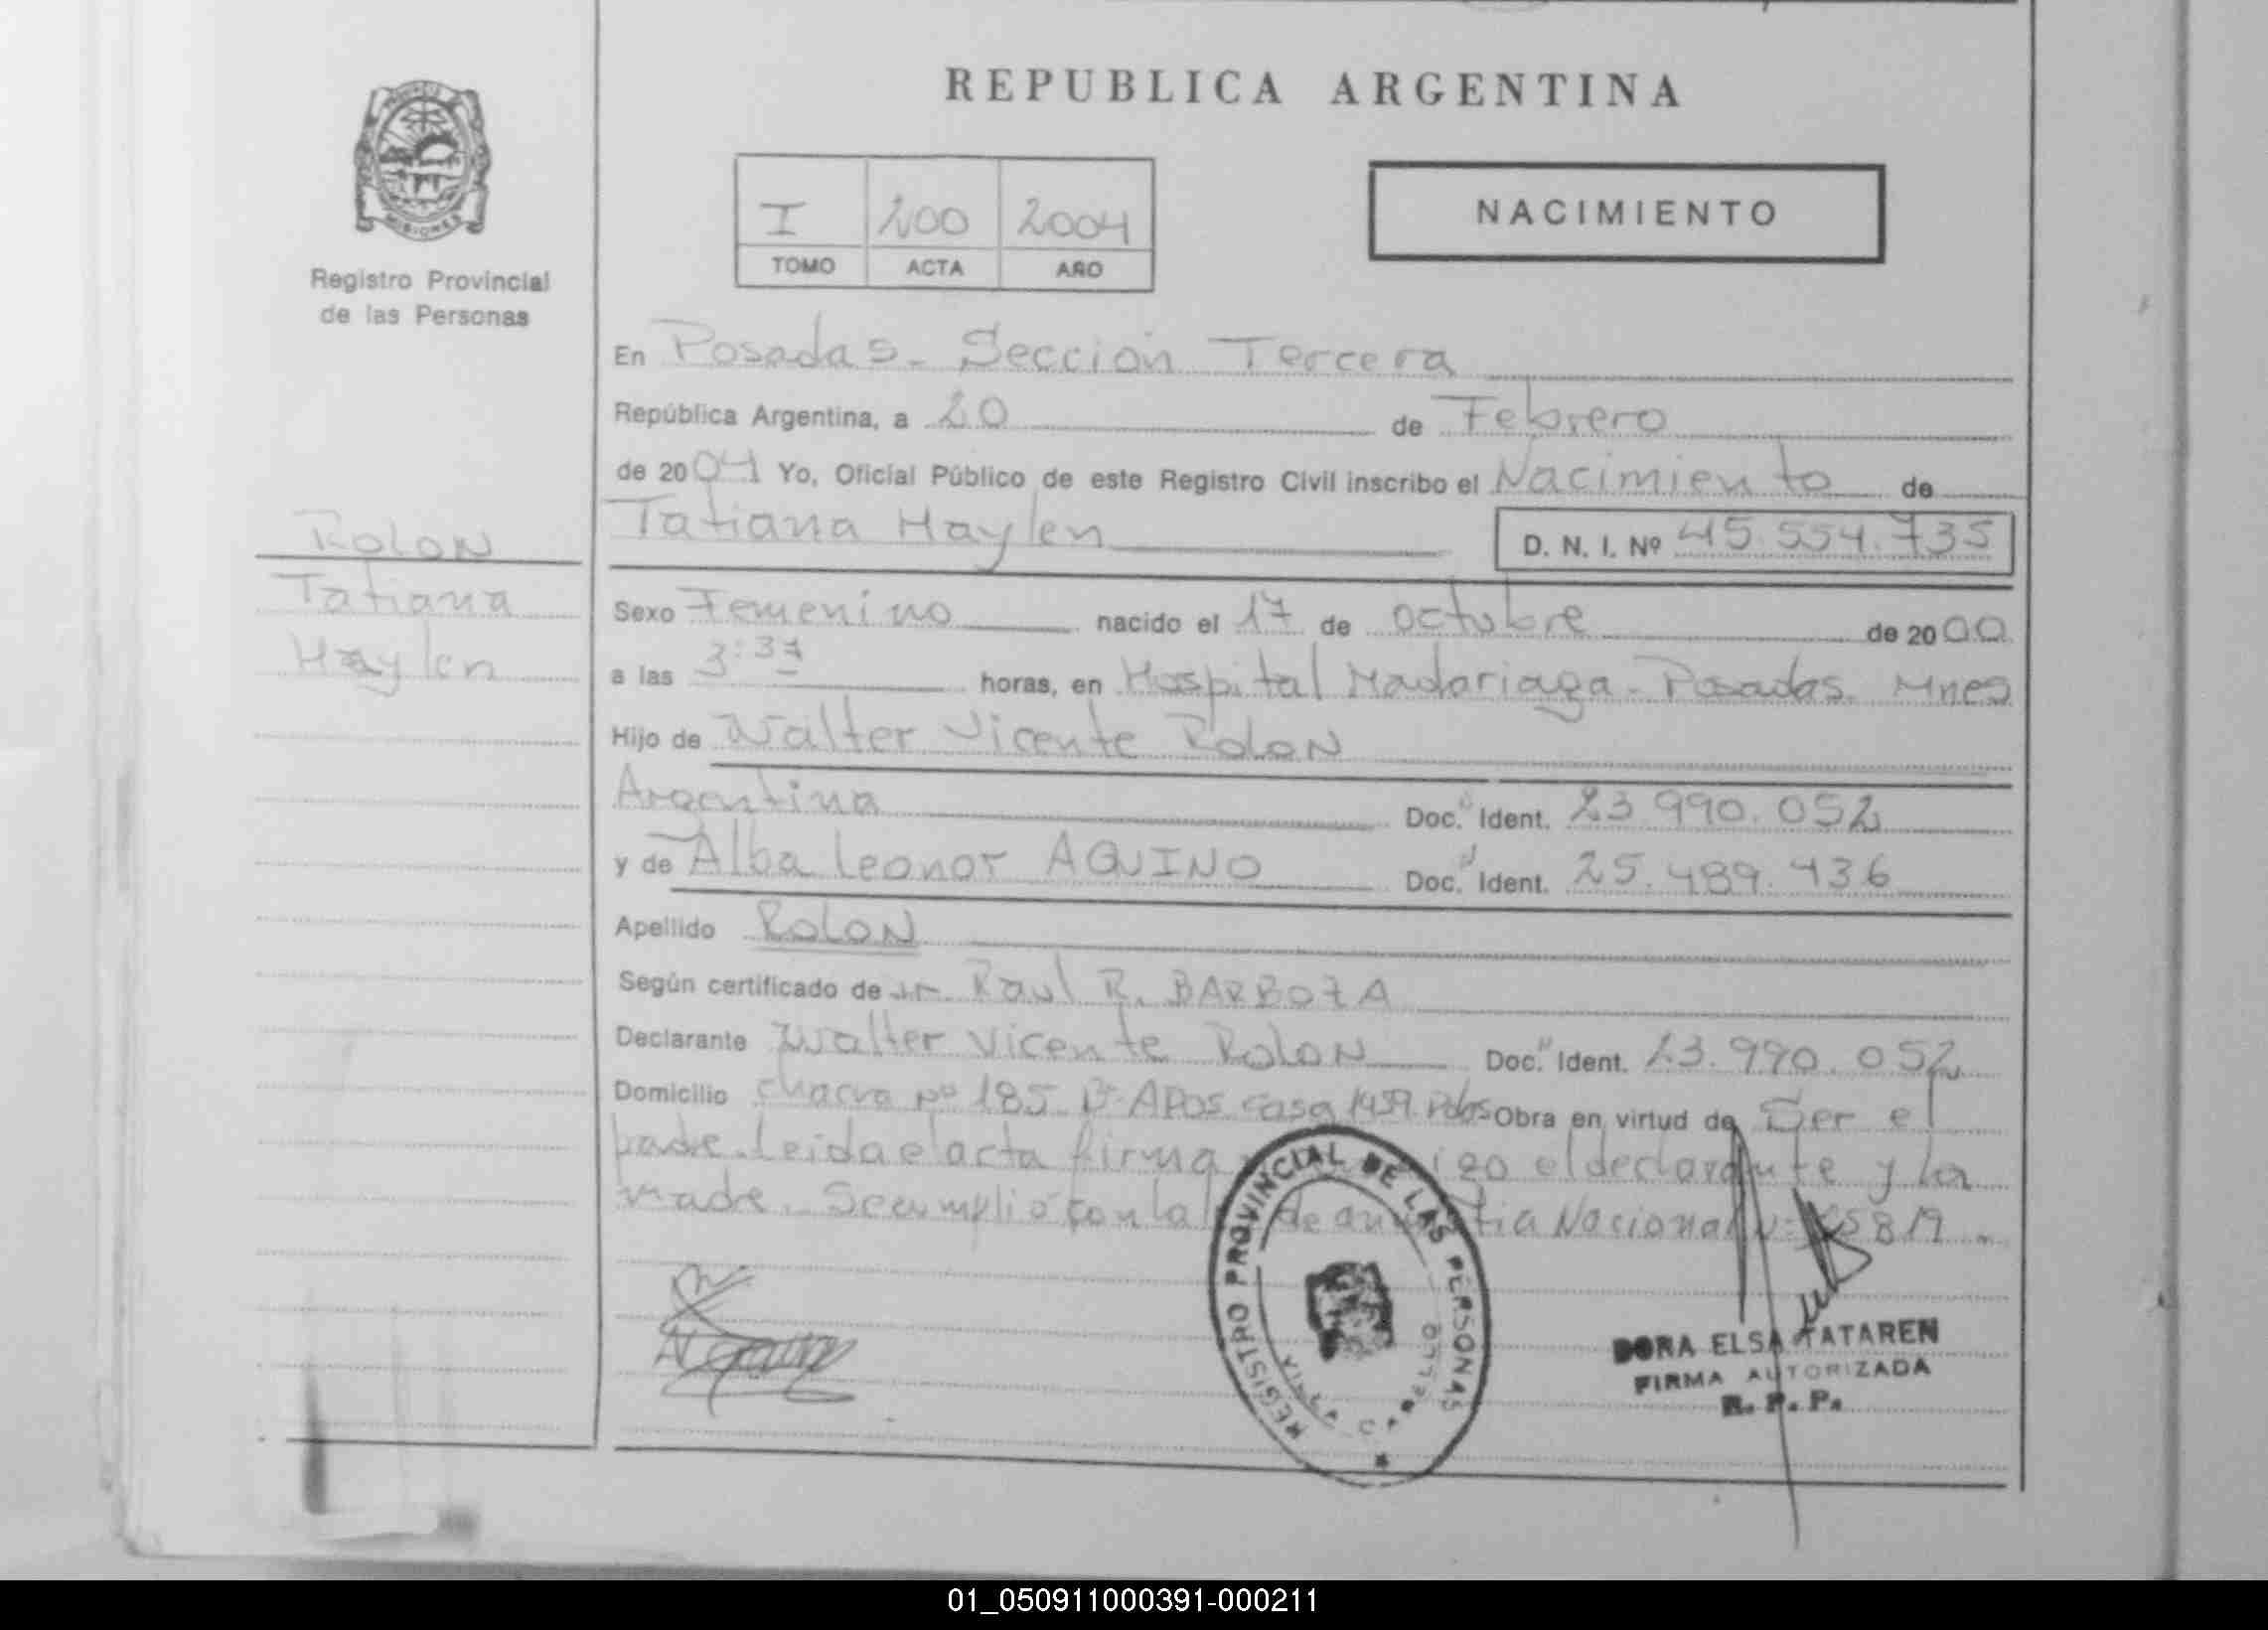 REPUBLICA ARGENTINA
MISIONES
Registro Provincial
de las Personas
I 200 2004
TOMO ACTA AÑO
NACIMIENTO
En Posadas - Sección Tercera
República Argentina, a 20 de Febrero
de 2004 Yo, Oficial Público de este Registro Civil inscribo el Nacimiento de
Tatiana Haylen D. N. I. Nº 45.554.735
Rolon
Tatiana
Haylen
Sexo Femenino nacido el 17 de octubre de 2000
a las 3:37 horas, en Hospital Madariaga - Posadas. Mnes
Hijo de Walter Vicente Rolon
Argentina Doc. Ident. 23.990.052
y de Alba Leonor AQUINO Doc. Ident. 25.489.436
Apellido Rolon
Según certificado de Raul R. BARBOZA
Declarante Walter Vicente Rolon Doc. Ident. 23.990.052
Domicilio chacra Nº 185 Bº APOS casa 1459 Pdas Obra en virtud de Ser el
padre. Leida el acta firma el declarante y la
madre. Se cumplió con la de Nacional 25819
REGISTRO PROVINCIAL DE LAS PERSONAS
CABELLO
DORA ELSA TATAREN
FIRMA AUTORIZADA
R. P. P.
01_050911000391-000211